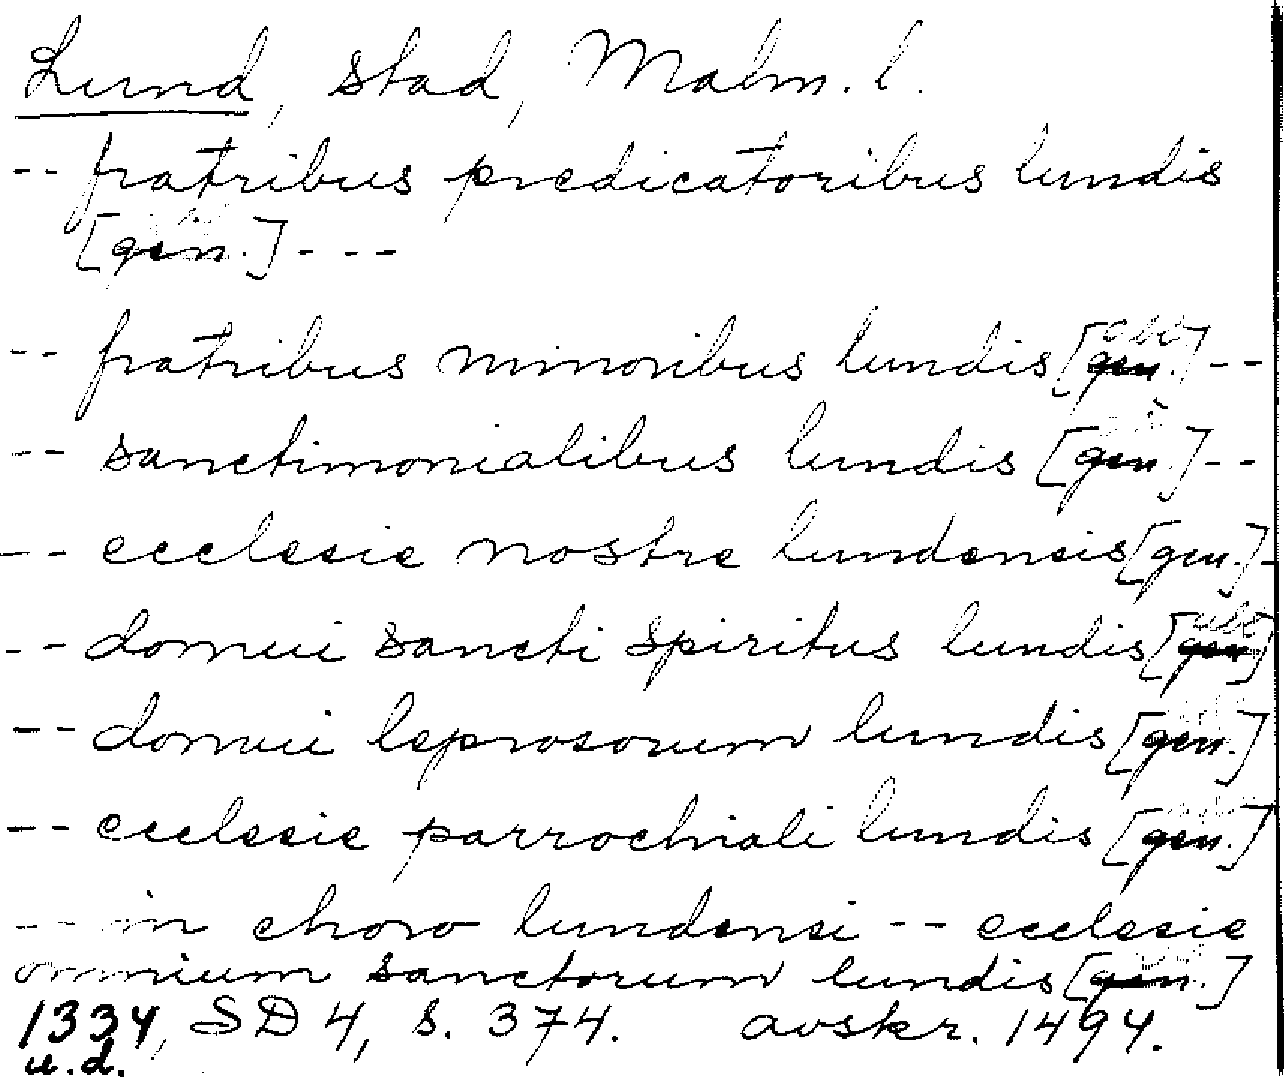 Lund, stad, Malm. l.
-- fratribus predicatoribus lundis
[gen.] ---
-- fratribus minoribus lundis [gen. abl] --
-- sanctimonialibus lundis [gen.] --
-- ecclesie nostre lundensis [gen.] -
-- domui sancti spiritus lundis [gen abl]
-- domui leprosorum lundis [gen.]
-- ecclesie parrochiali lundis [gen.]
-- in choro lundensi -- ecclesie
omnium sanctorum lundis [gen.]
1334, SD 4, s. 374. avskr. 1494.
u.d.